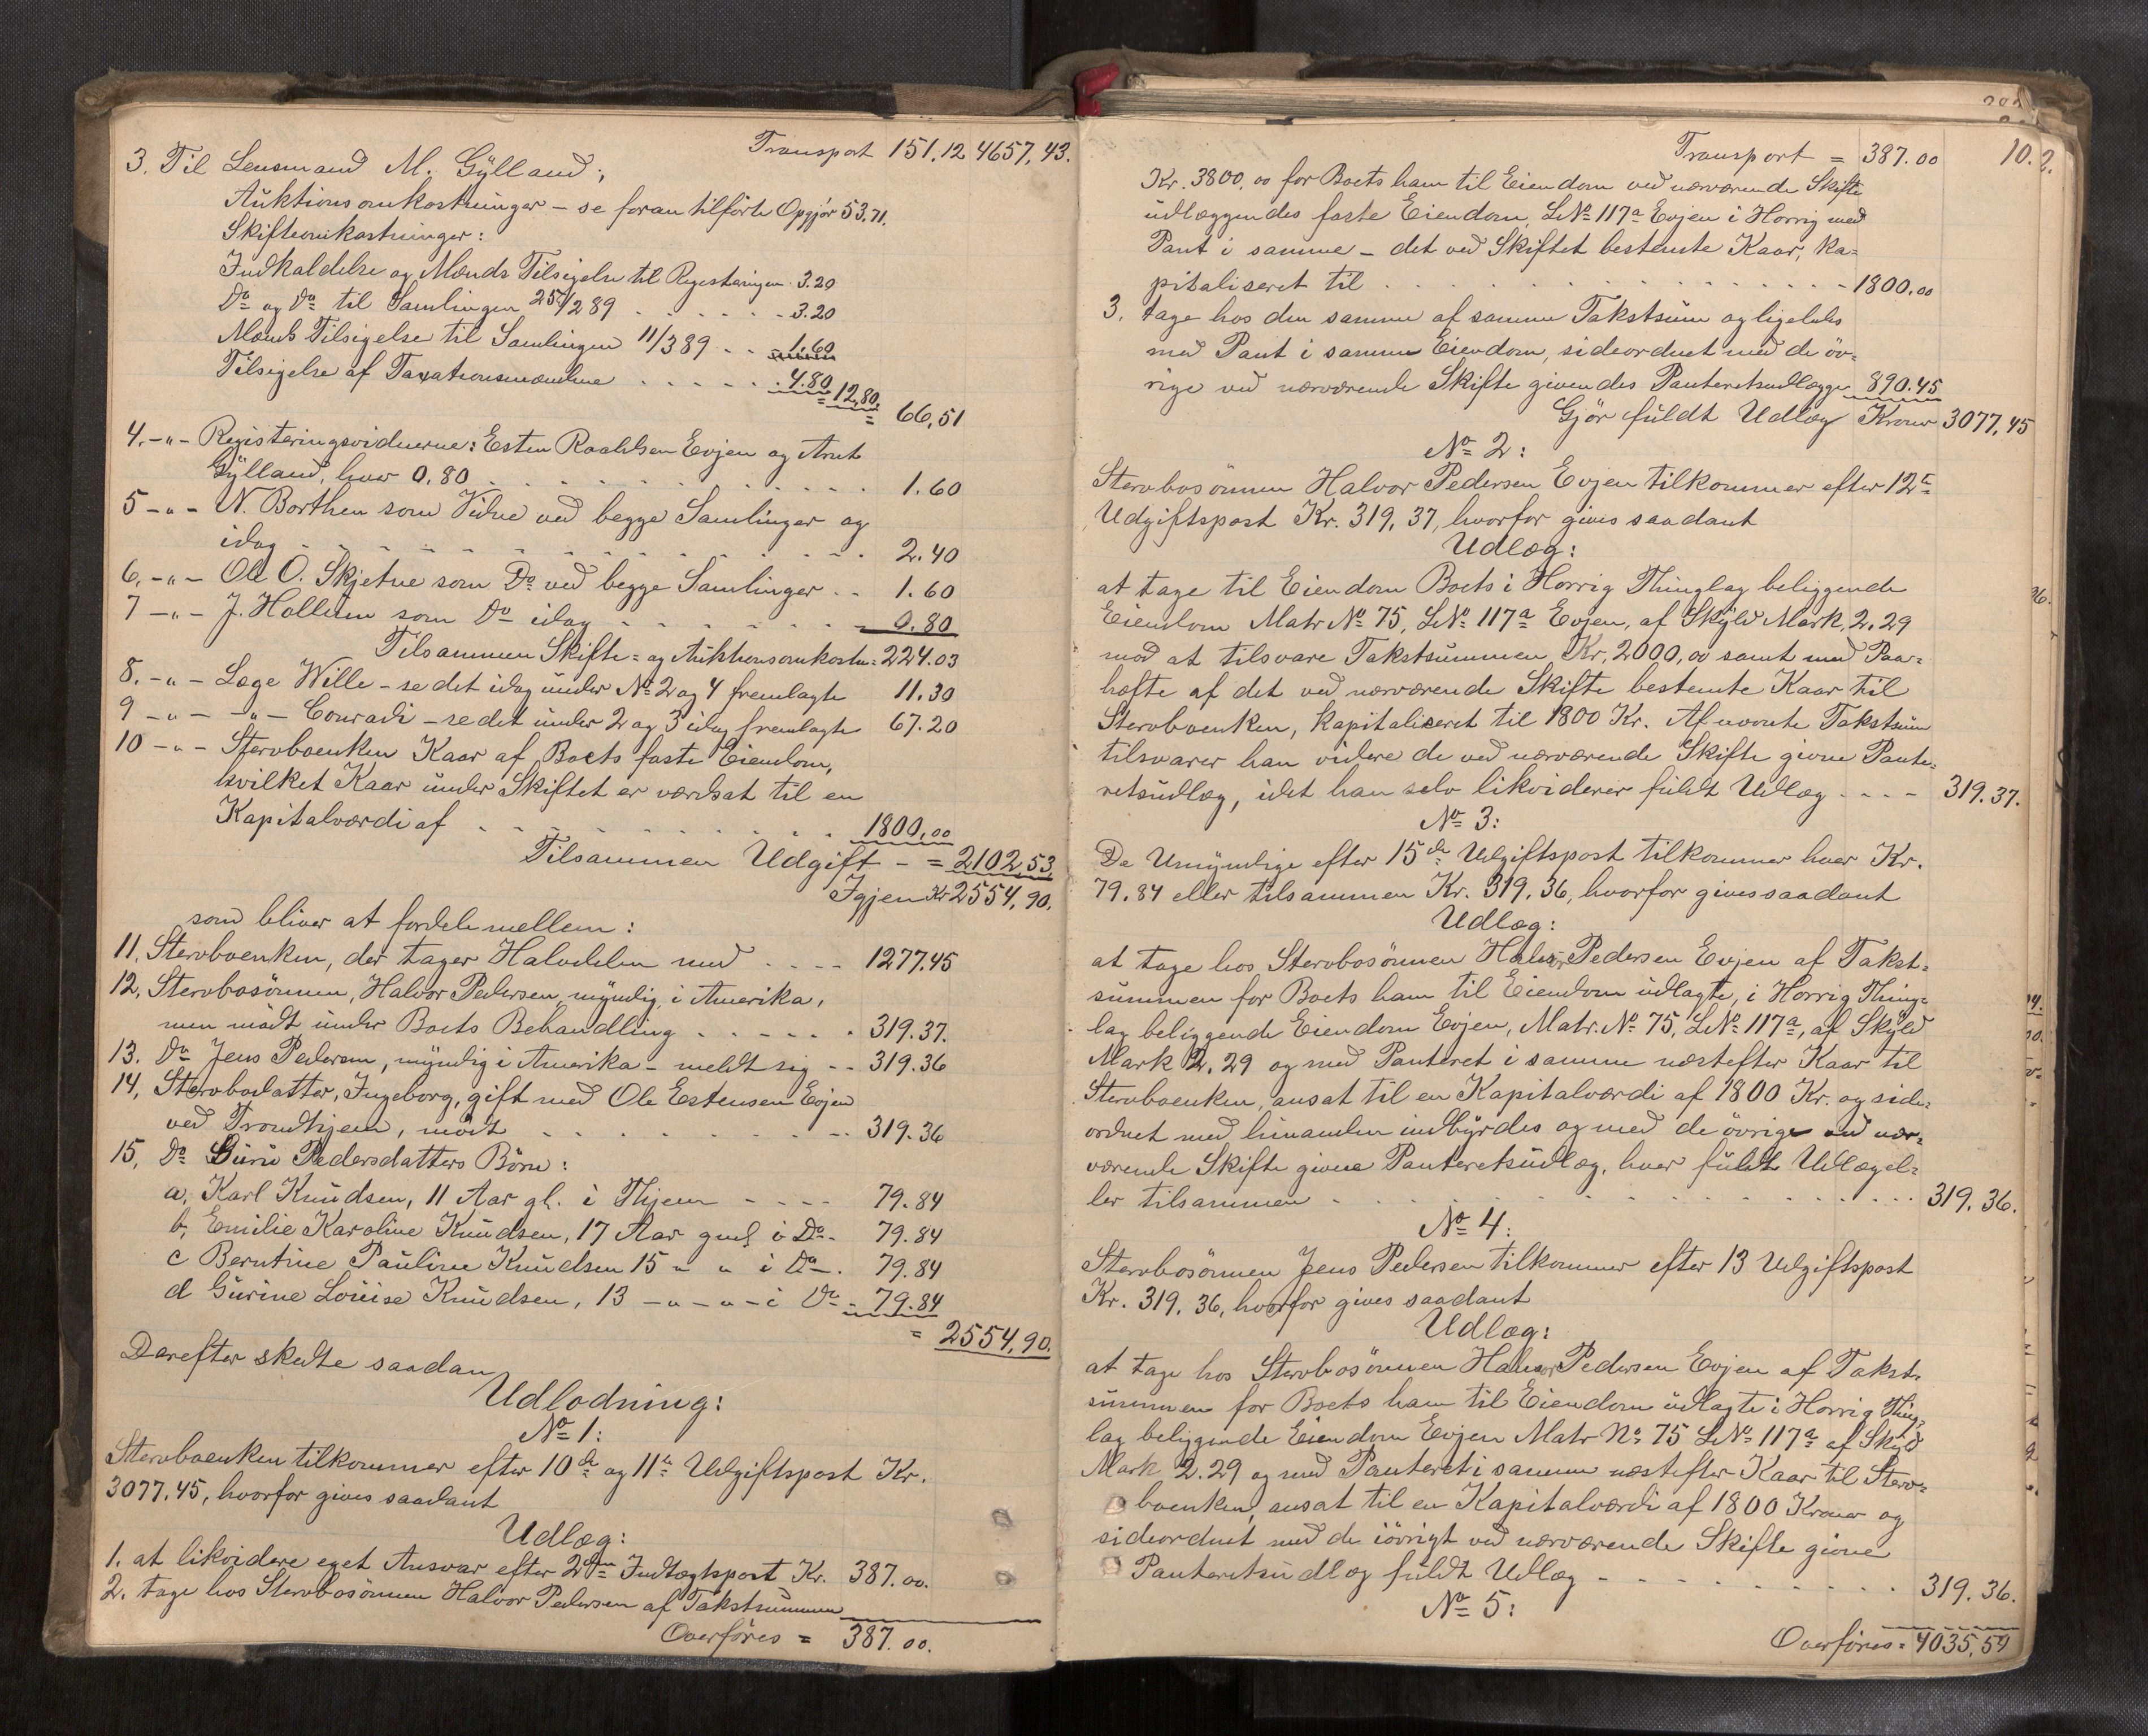 Transport 151.12 4657,43.
3. Til Lensmand M. Gÿlland;
Auktionsomkostninger - se foran tilførte Opgjör 53.71.
Skifteomkostninger:
Indkaldelse og Mænds Tilsigelse til Registeringen . 3.20
Do og Do til Samlingen 25/2 89 . . . . . . - 3.20
Mænds Tilsigelse til Samlingen 11/3 89 . . - 1.60
Tilsigelse af Taxationsmændene . . . . . . . 4.80
= 12,80. = 66,51
4. -„- Registeringsvidnerne: Esten Roaldsen Evjen og Arnt
Gÿlland, hver 0.80 . . . . . . . . . . . . 1.60
5 -„- N. Borthen som Vidne ved begge Samlinger og
idag . . . . . . . . . . . . . . . . 2.40
6. -„- Ole O. Skjetne som Do ved begge Samlinger . . 1.60
7 -„- J. Hollum som Do idag . . . . . . . - 0.80
Tilsammen Skifte= og Auktionsomkostn = 224.03
8. -„- Læge Wille - se det idag under No 2 og 4 fremlagte 11.30
9 -„- -„- Conradi - se det under 2 og 3 idag fremlagte 67.20
10 -„- Stervboenken Kaar af Boets faste Eiendom,
hvilket Kaar under Skiftet er værdsat til en
Kapitalværdi af . . . . . . . . . . . . 1800,00
Tilsammen Udgift - = 2102,53.
Igjen Kr 2554,90.
som bliver at fordele mellem:
11. Stervboenken, der tager Halvdelen med . . . . 1277.45
12. Stervbosönnen, Halvor Pedersen, mÿndig, i Amerika,
men mödt under Boets Behandling . . . . . . 319.37.
13. Do Jens Pedersen, mÿndig i Amerika - meldt sig - - 319.36
14, Stervbodatter, Ingeborg, gift med Ole Estensen Evjen
ved Trondhjem, mödt . . . . . . . . . . 319.36
15, Do Guru Pedersdatters Börn:
a, Karl Knudsen, 11 Aar gl. i Thjem - - - - 79.84
b, Emilie Karoline Knudsen, 17 Aar gml i Do - 79.84
c Berntine Pauline Knudsen 15 „ „ i Do . 79.84
d Gurine Louise Knudsen, 13 -„-„- i Do - 79.84
= 2554,90.
Derefter skedte saadan
Udlodning:
No 1:
Stervboenken tilkommer efter 10de og 11te Udgiftspost Kr.
3077.45, hvorfor gives saadant
Udlæg:
1. at likvidere eget Ansvar efter 2den Indtægtspost Kr. 387.00.
2. tage hos Stervbosönnen Halvor Pedersen af Takstsummen
Overföres = 387.00.
10.2.
Transport = 387.00
Kr. 3800,00 for Boets ham til Eiendom ved nærværende Skifte
udlæggendes faste Eiendom, LNo 117a Evjen i Horrig med
Pant i samme - det ved Skiftet bestemte Kaar, ka-
pitaliseret til . . . . . . . . . . . . - 1800.00
3. tage hos den samme af samme Takstsum og ligeledes
med Pant i samme Eiendom, sideordnet med de öv-
rige ved nærværende Skifte givendes Panteretsudlægger 890.45
Gjör fuldt Udlæg Kroner 3077,45
No 2:
Stervbosönnen Halvor Pedersen Evjen tilkommer efter 12te
Udgiftspost Kr. 319,37, hvorfor gives saadant
Udlæg:
at tage til Eiendom Boets i Horrig Thinglag beliggende
Eiendom Matr No 75, LNo 117a Evjen, af Skÿld Mark, 2.29
mod at tilsvare Takstsummen Kr. 2000,00 samt med Paa-
hæfte af det ved nærværende Skifte bestemte Kaar til
Stervboenken, kapitaliseret til 1800 Kr. Af nævnte Takstsum
tilsvarer han videre de ved nærværende Skifte givne Pante-
retsudlæg, idet han selv likviderer fuldt Udlæg - - - - 319.37.
No 3:
De Umÿndige efter 15de Udgiftspost tilkommer hver Kr.
79.84 eller tilsammen Kr. 319.36, hvorfor gives saadant
Udlæg:
at tage hos Stervbosönnen Halvor Pedersen Evjen af Takst-
summen for Boets ham til Eiendom udlagte, i Horrig Thing-
lag beliggende Eiendom Evjen, Matr. No 75, LNo 117a, af Skÿld
Mark 2.29 og med Panteret i samme næstefter Kaar til
Stervboenken, ansat til en Kapitalværdi af 1800 Kr. og side-
ordnet med hinanden indbÿrdes og med de övrige ved nær-
værende Skifte givne Panteretsudlæg, hver fuldt Udlæg el-
ler tilsammen . . . . . . . . . . . . . 319.36.
No 4:
Stervbosönnen Jens Pedersen tilkommer efter 13 Udgiftspost
Kr. 319.36, hvorfor gives saadant
Udlæg:
at tage hos Stervbosönnen Halvor Pedersen Evjen af Takst-
summen for Boets ham til Eiendom udlagte i Horrig Thing-
lag beliggende Eiendom Evjen Matr No 75 LNo 117a af Skÿld
Mark 2.29 og med Panteret i samme næstefter Kaar til Sterv-
boenken, ansat til en Kapitalværdi af 1800 Kroner og
sideordnet med de iövrigt ved nærværende Skifte givne
Panteretsudlæg fuldt Udlæg - - - - - - - 319.36.
No 5:
Overföres = 4035,59